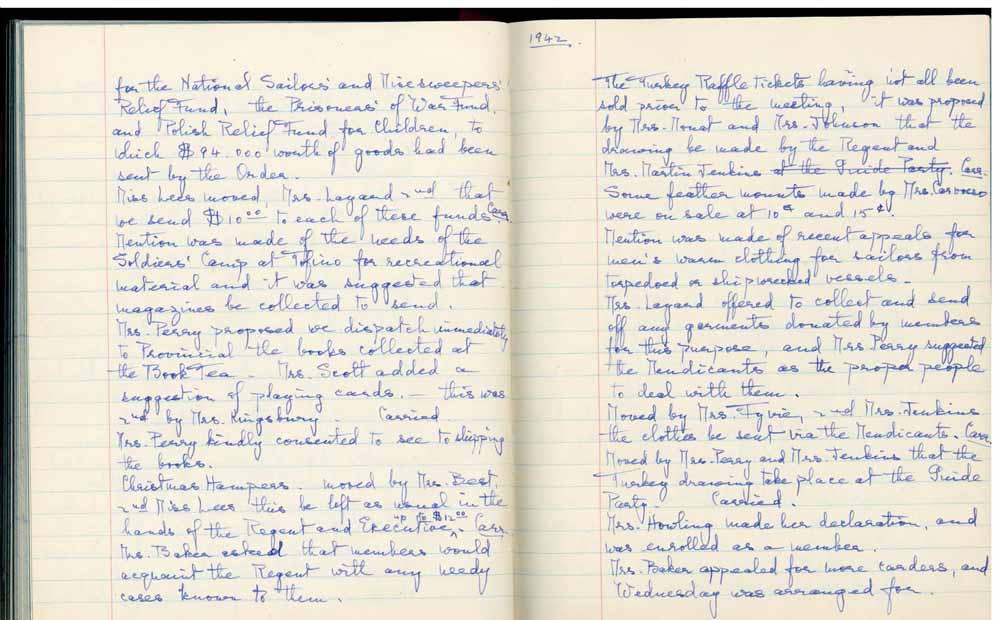 1942.
for the National Sailors' and Minesweepers'
Relief Fund, the Prisoners' of War Fund,
and Polish Relief Fund for Children, to
which $94.000 worth of goods had been
sent by the Order.
Miss Lees moved, Mrs. Layard 2nd that
we send $10.00 to each of these funds. Carr.
Mention was made of the needs of the
Soldiers' Camp at Tofino for recreational
material and it was suggested that
magazines be collected to send.
Mrs. Perry proposed we dispatch immediately
to Provincial the books collected at
the Book Tea. Mrs. Scott added a
suggestion of playing cards. — this was
2nd by Mrs. Kingsbury. Carried.
Mrs. Perry kindly consented to see to shipping
the books.
Christmas Hampers. moved by Mrs. Best,
2nd Miss Lees this be left as usual in the
hands of the Regent and Executive up to $12.00. Carr.
Mrs. Baker asked that members would
acquaint the Regent with any needy
cases known to them.
The Turkey Raffle Tickets having not all been
sold prior to the meeting, it was proposed
by Mrs. Mouat and Mrs. Johnson that the
drawing be made by the Regent and
Mrs. Martin Jenkins at the Guide Party. Carr.
Some feather mounts made by Mrs.
were on sale at 10¢ and 15¢.
Mention was made of recent appeals for
men's warm clothing for sailors from
torpedoed or shipwrecked vessels.
Mrs. Layard offered to collect and send
off any garments donated by members
for this purpose, and Mrs Perry suggested
the Mendicants as the proper people
to deal with them.
Moved by Mrs. Fyvie, 2nd Mrs. Jenkins
the clothes be sent via the Mendicants. Carr.
Moved by Mrs. Perry and Mrs. Jenkins that the
Turkey drawing take place at the Guide
Party. Carried.
Mrs. Howling made her declaration, and
was enrolled as a member.
Mrs. Baker appealed for more carders, and
Wednesday was arranged for.